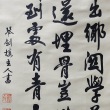 出鄉關學
還埋骨豈
到處有青
琴劍樓主人書